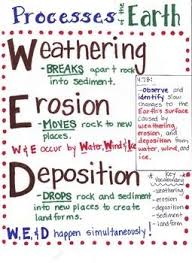 Processes of the Earth
Weathering
-BREAKS apart rock
into sediment.
Erosion
-MOVES rock to new
places.
W & E occur by Water, Wind & Ice
Deposition
-DROPS rock and sediment
into new places to create
landforms.
W, E, & D happen simultaneously!
-Observe and
identify slow
changes to the
Earth's surface
caused by
weathering,
erosion, and
deposition from
water, wind, and
ice.
Key
Vocabulary
-weathering
-erosion
-deposition
-sediment
-landform